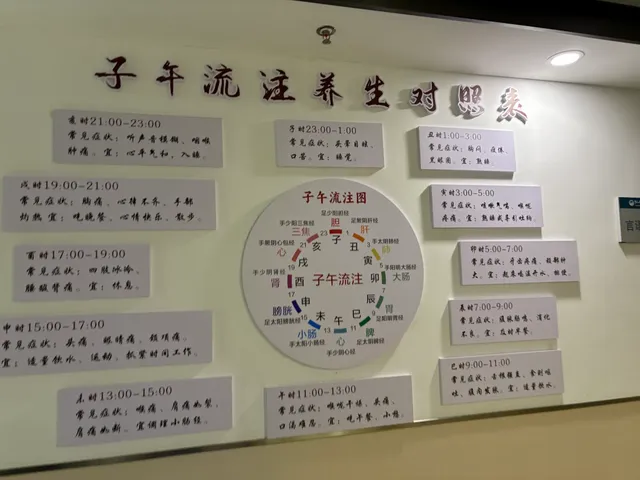 子午流注养生对照表
子时23:00-1:00
常见症状：头晕目眩、
口苦。宜：睡觉。
丑时1:00-3:00
常见症状：胸闷、疲倦、
黑眼圈。宜：熟睡。
寅时3:00-5:00
常见症状：咳嗽气喘、咽喉
疼痛。宜：熟睡或导引吐纳。
卯时5:00-7:00
常见症状：牙齿疼痛、颈部肿
大。宜：起床喝温开水、排便。
辰时7:00-9:00
常见症状：腹胀肠鸣、消化
不良。宜：及时早餐。
巳时9:00-11:00
常见症状：舌根强直、食则呕
吐、腹内发胀。宜：适量饮水。
午时11:00-13:00
常见症状：咽喉干燥、头痛、
口渴难忍。宜：吃午餐、小憩。
未时13:00-15:00
常见症状：喉痛、肩痛如拔、
肩痛如断。宜调理小肠经。
申时15:00-17:00
常见症状：头痛、眼睛痛、颈项痛。
宜：适量饮水、运动、抓紧时间工作。
酉时17:00-19:00
常见症状：四肢冰冷、
腰酸背痛。宜：休息。
戌时19:00-21:00
常见症状：胸痛、心律不齐、手部
灼热宜：吃晚餐、心情快乐、散步。
亥时21:00-23:00
常见症状：听声音模糊、咽喉
肿痛。宜：心平气和，入睡。
子午流注图
子午流注
足少阳胆经
胆
子
足厥阴肝经
肝
丑
手太阴肺经
肺
寅
手阳明大肠经
大肠
卯
足阳明胃经
胃
辰
足太阴脾经
脾
巳
手少阴心经
心
午
手太阳小肠经
小肠
未
足太阳膀胱经
膀胱
申
手少阴肾经
肾
酉
手厥阴心包经
心
戌
手少阳三焦经
三焦
亥
23
1
3
5
7
9
11
13
15
17
19
21